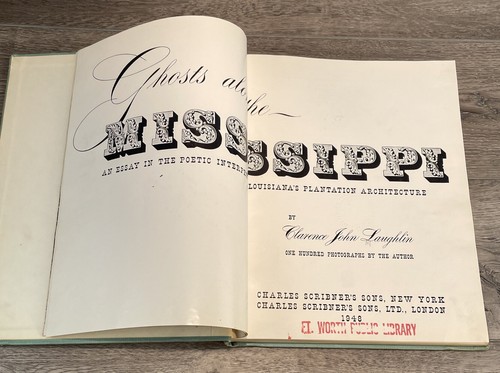 Ghosts alo
the
MISSISSIPPI
AN ESSAY IN THE POETIC INTERP
LOUISIANA'S PLANTATION ARCHITECTURE
BY
Clarence John Laughlin
ONE HUNDRED PHOTOGRAPHS BY THE AUTHOR
CHARLES SCRIBNER'S SONS, NEW YORK
CHARLES SCRIBNER'S SONS, LTD., LONDON
1948
FT. WORTH PUBLIC LIBRARY